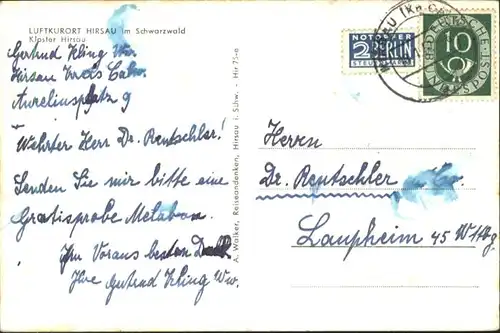 LUFTKURORT HIRSAU im Schwarzwald
Kloster Hirsau
Gertrud Kling Ww.
Hirsau Kreis Calw.
Aureliusplatz 9
Wehrter Herr Dr. Rentschler!
Senden Sie mir bitte eine
Gratisprobe Metaban.
Im Voraus besten Dank
Ihre Gertrud Kling Ww.
A. Walker, Reiseandenken, Hirsau i. Schw. - Hir 75-e
NOTOPFER
2 BERLIN
STEUERMARKE
HIRSAU (Kr. Calw)
DEUTSCHE
10
BUNDESPOST
Herrn
Dr. Rentschler & Co.
Laupheim 45 Wttbg